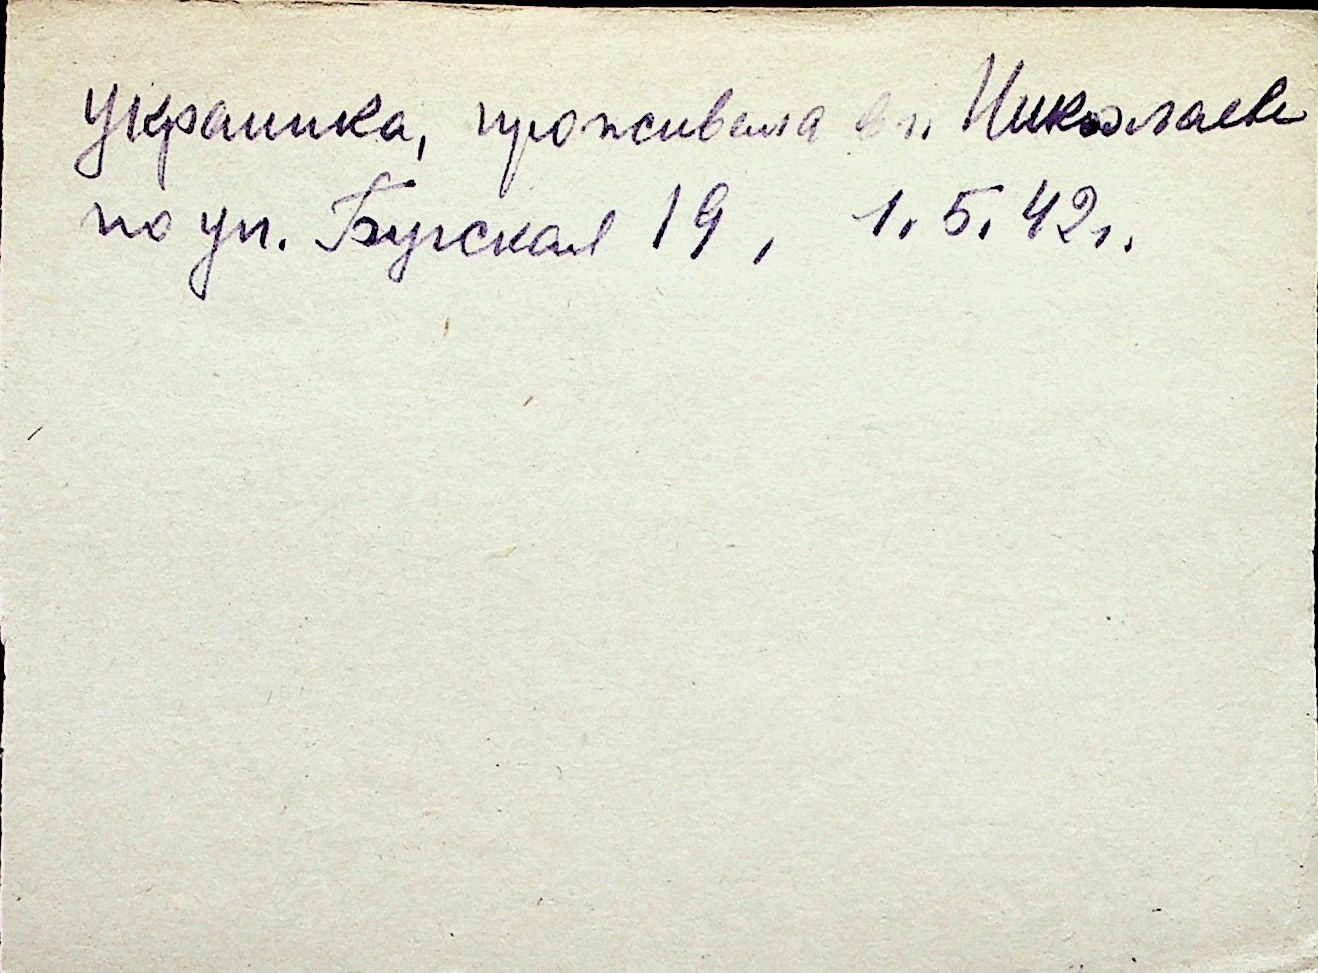 Украинка, проживала в г. Николаеве
по ул. Бугская 19, 1.5.42 г.